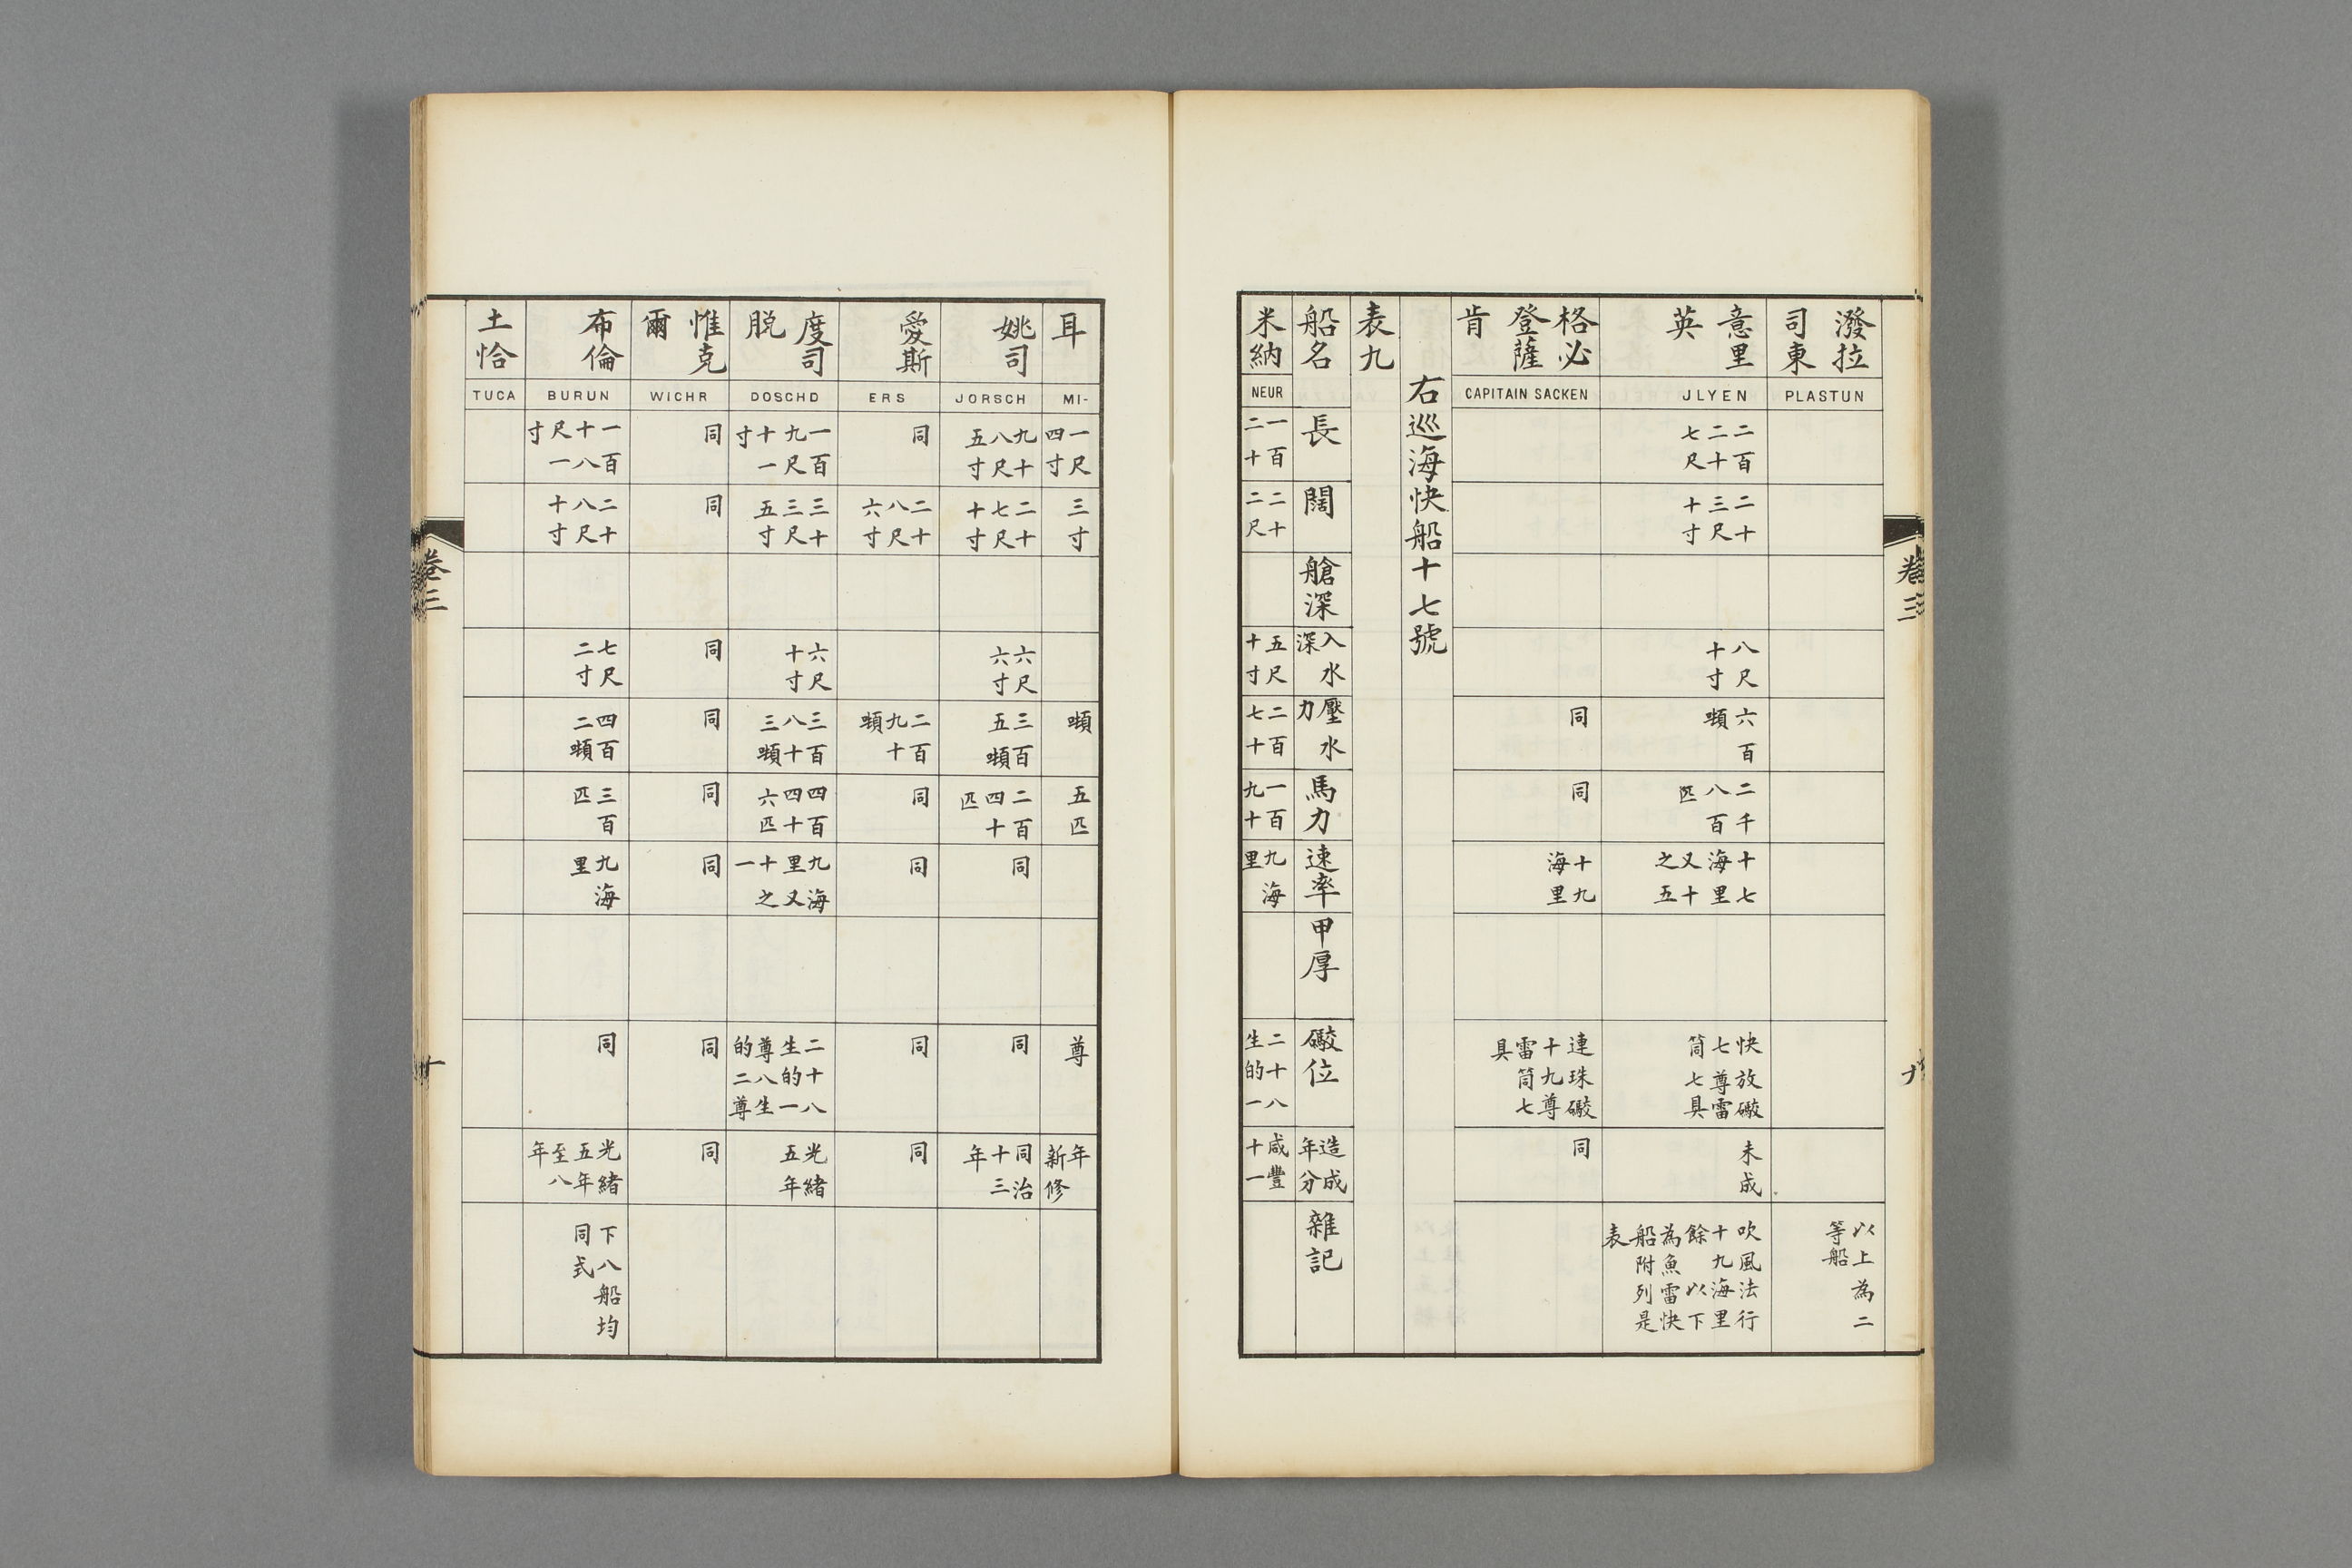 潑拉
司東
PLASTUN
以上為二
等船
意里
英
JLYEN
二百
二十
七尺
二十
三尺
十寸
八尺
十寸
六百
噸
二千
八百
匹
十七
海里
又十
之五
快放礮
七尊雷
筒七具
未成
吹風法行
十九海里
餘 以下
為魚雷快
船附列是
表
格必
登薩
肯
CAPITAIN SACKEN
同
同
十九
海里
連珠礮
十九尊
雷筒七
具
同
右巡海快船十七號
表九
船名
長
闊
艙深
入水
深
壓水
力
馬力
速率
甲厚
礮位
造成
年分
雜記
米納
NEUR
一百
二十
二十
二尺
五尺
十寸
二百
七十
一百
九十
九海
里
二十八
生的一
咸豐
十一
卷三
九
耳
MI-
一尺
四寸
三寸
噸
五匹
尊
年
新修
姚司
JORSCH
九十
八尺
五寸
二十
七尺
十寸
六尺
六寸
三百
五噸
二百
四十
匹
同
同
同治
十三
年
愛斯
ERS
同
二十
八尺
六寸
二百
九十
噸
同
同
同
同
度司
脫
DOSCHD
一百
九尺
十一
寸
三十
三尺
五寸
六尺
十寸
三百
八十
三噸
四百
四十
六匹
九海
里又
十之
一
二十八
生的一
尊八生
的二尊
光緒
五年
惟克
爾
WICHR
同
同
同
同
同
同
同
同
布倫
BURUN
一百
十八
尺一
寸
二十
八尺
十寸
七尺
二寸
四百
二噸
三百
匹
九海
里
同
光緒
五年
至八
年
下八船均
同式
土恰
TUCA
卷三
十